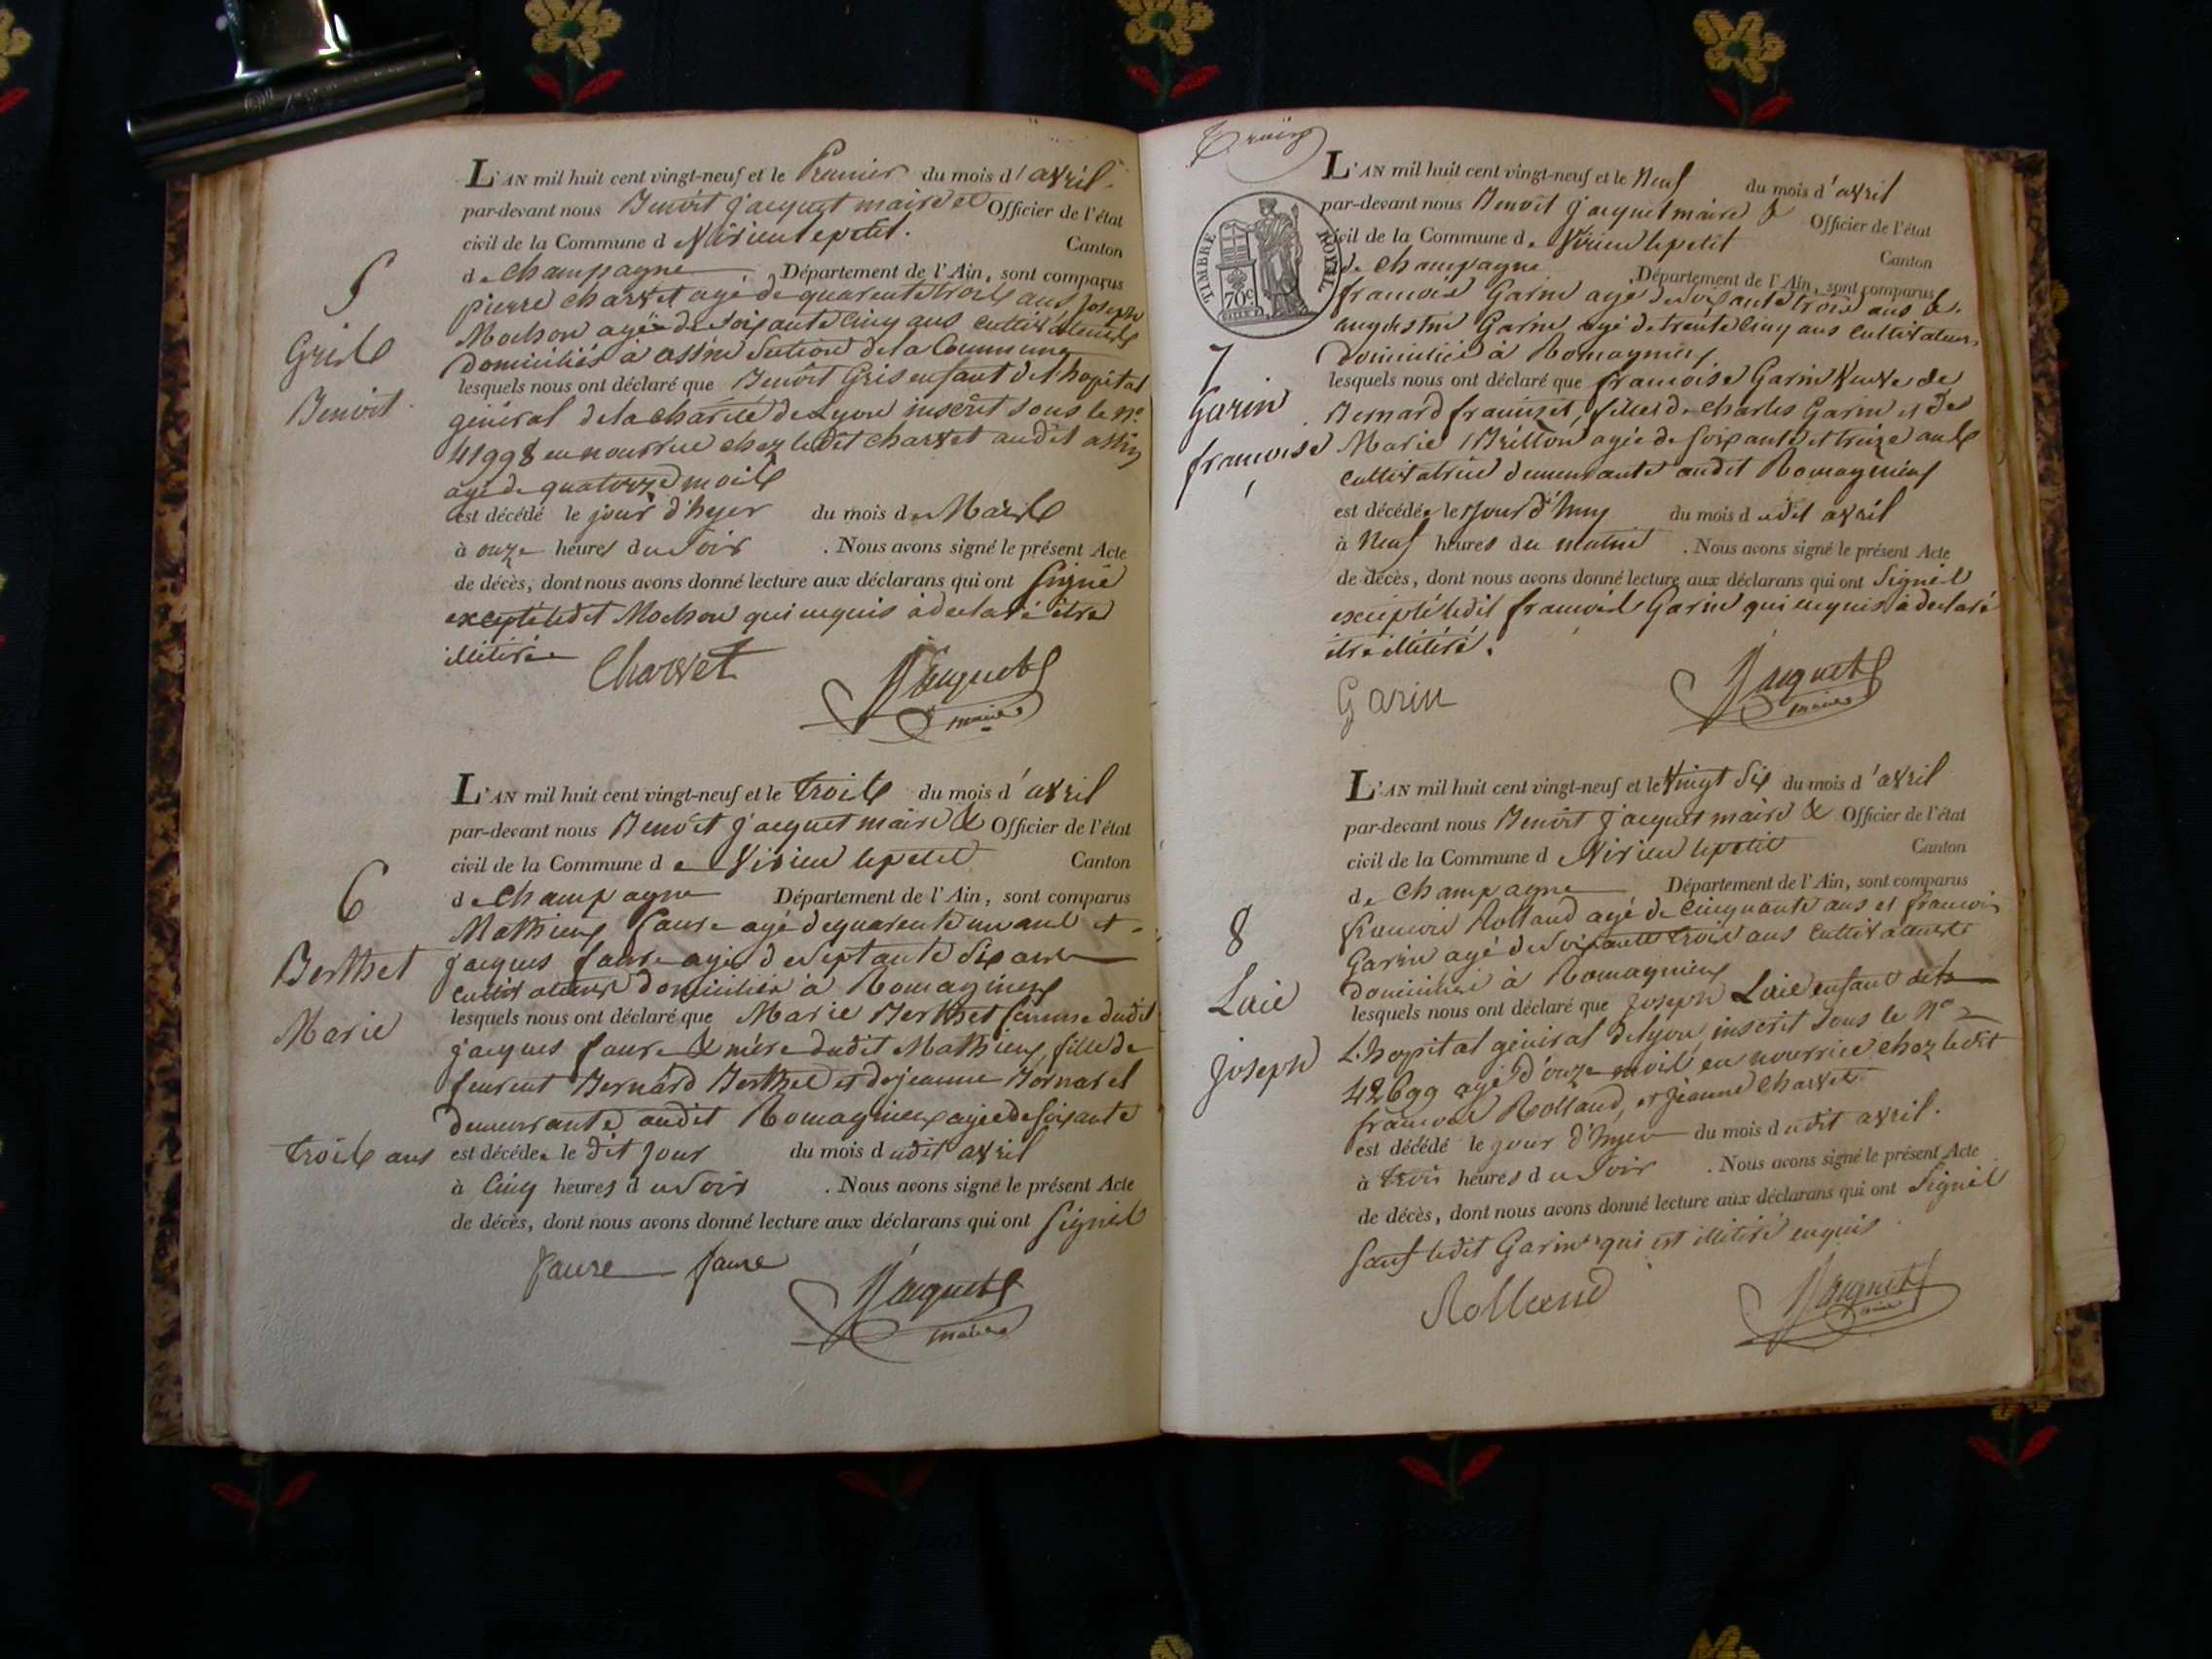 L'AN mil huit cent vingt-neuf et le Premier du mois d'avril.
par-devant nous Benoit Jacquet maire et Officier de l'état
civil de la Commune de Virieu le petit. Canton
de Champagne Département de l'Ain, sont comparus
pierre charvet agé de quarente trois ans Joseph
Mochon agé de soixante cinq ans cultivateurs
domiciliés à assin Section de la Commune
lesquels nous ont déclaré que Benoit Gris enfant de l'hopital
général de la charité de Lyon inscrit sous le no.
41998 en nourrice chez ledit charvet audit assin
agé de quatorze mois
est décédé le jour d'hyer du mois de Mars
à onze heures du Soir . Nous avons signé le présent Acte
de décès, dont nous avons donné lecture aux déclarans qui ont signé
excepté ledit Mochon qui enquis à declaré être
illitiré
Charvet Jacquet
maire
5
Gris
Benoit
L'AN mil huit cent vingt-neuf et le trois du mois d'avril
par-devant nous Benoit Jacquet maire & Officier de l'état
civil de la Commune de Virieu le petit Canton
de Champagne Département de l'Ain, sont comparus
Mathieu faure agé de quarente un ans et
Jacques faure agé de Septante Six ans
cultivateurs domiciliés à Romagnieu
lesquels nous ont déclaré que Marie Berthet femme dudit
Jacques faure & mère dudit Mathieu, fille de
Bernard Berthet et de jeanne Bornarel
demeurante audit Romagnieu agée de soixante
trois ans est décédée le dit jour du mois dudit avril
à Cinq heures du Soir . Nous avons signé le présent Acte
de décès, dont nous avons donné lecture aux déclarans qui ont Signés
faure faure Jacquet
maire
6
Berthet
Marie
TIMBRE ROYAL
70 c
L'AN mil huit cent vingt-neuf et le Neuf du mois d'avril
par-devant nous Benoit Jacquet maire & Officier de l'état
civil de la Commune de Virieu le petit Canton
de Champagne Département de l'Ain, sont comparus
francois Garin agé de soixante trois ans &
augustin Garin agé de trente Cinq ans Cultivateurs
domiciliés à Romagnieu
lesquels nous ont déclaré que francoise Garin Veuve de
Bernard, fille de Charles Garin et de
Marie Brillon agée de soixante et treize ans
Cultivatrice demeurante audit Romagnieu
est décédée le Jour d'huy du mois dudit avril
à Neuf heures du matin . Nous avons signé le présent Acte
de décès, dont nous avons donné lecture aux déclarans qui ont Signés
excepté ledit francois Garin qui enquis à declaré
être illitiré.
Garin Jacquet
maire
7
Garin
francoise
L'AN mil huit cent vingt-neuf et le Vingt Six du mois d'avril
par-devant nous Benoit Jacquet maire & Officier de l'état
civil de la Commune de Virieu le petit Canton
de Champagne Département de l'Ain, sont comparus
francois Rolland agé de Cinquante ans et francois
Garin agé de soixante trois ans Cultivateurs
domiciliés à Romagnieu
lesquels nous ont déclaré que Joseph Laie enfant de
L'hopital général de Lyon, inscrit sous le No
42699 agé d'onze mois en nourrice chez ledit
francois Rolland, et Jeanne Charvet
est décédé le jour d'hyer du mois dudit avril.
à trois heures du Soir . Nous avons signé le présent Acte
de décès, dont nous avons donné lecture aux déclarans qui ont Signés
sauf ledit Garin qui est illitiré enquis
Rolland Jacquet
maire
8
Laie
Joseph